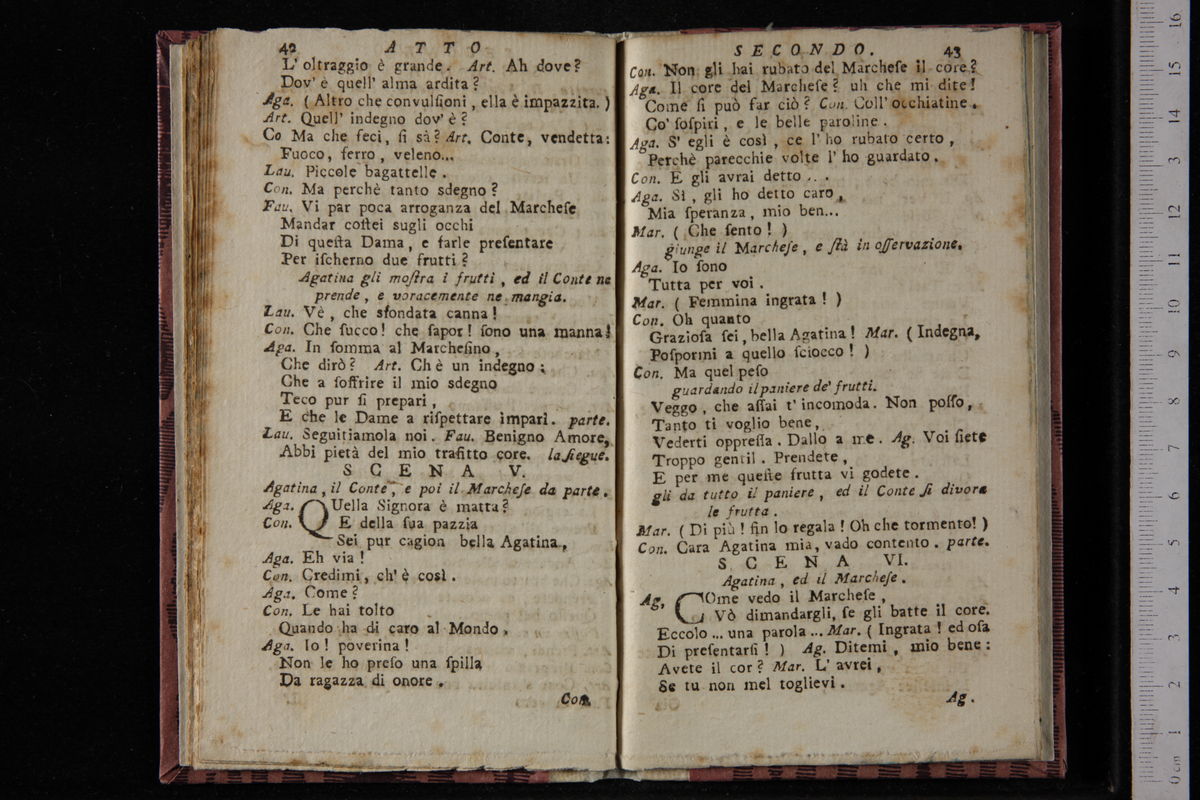 42 ATTO
L' oltraggio è grande. Art. Ah dove?
Dov' è quell' alma ardita?
Aga. (Altro che convulſioni, ella è impazzita.)
Art. Quell' indegno dov' è?
Co Ma che feci, ſi sà? Art. Conte, vendetta:
Fuoco, ferro, veleno...
Lau. Piccole bagattelle.
Con. Ma perchè tanto sdegno?
Fau. Vi par poca arroganza del Marcheſe
Mandar coſtei sugli occhi
Di queſta Dama, e farle preſentare
Per iſcherno due frutti?
Agatina gli moſtra i frutti, ed il Conte ne
prende, e voracemente ne mangia.
Lau. Vè, che sfondata canna!
Con. Che ſucco! che ſapor! ſono una manna!
Aga. In ſomma al Marcheſino,
Che dirò? Art. Ch è un indegno:
Che a ſoffrire il mio sdegno
Teco pur ſi prepari,
E che le Dame a riſpettare impari. parte.
Lau. Seguitiamola noi. Fau. Benigno Amore,
Abbi pietà del mio trafitto core. la ſiegue.
SCENA V.
Agatina, il Conte, e poi il Marcheſe da parte.
Aga. QUella Signora è matta?
Con. E della ſua pazzia
Sei pur cagion bella Agatina,
Aga. Eh via!
Con. Credimi, ch' è così.
Aga. Come?
Con. Le hai tolto
Quando ha di caro al Mondo,
Aga. Io! poverina!
Non le ho preſo una ſpilla
Da ragazza di onore.
Con.
SECONDO. 43
Con. Non gli hai rubato del Marcheſe il core?
Aga. Il core del Marcheſe? uh che mi dite!
Come ſi può far ciò? Con. Coll' occhiatine.
Co' ſoſpiri, e le belle paroline.
Aga. S' egli è così, ce l' ho rubato certo,
Perchè parecchie volte l' ho guardato.
Con. E gli avrai detto...
Aga. Sì, gli ho detto caro,
Mia ſperanza, mio ben...
Mar. (Che ſento!)
giunge il Marcheſe, e ſtà in oſſervazione.
Aga. Io ſono
Tutta per voi.
Mar. (Femmina ingrata!)
Con. Oh quanto
Grazioſa ſei, bella Agatina! Mar. (Indegna,
Poſpormi a quello ſciocco!)
Con. Ma quel peſo
guardando il paniere de' frutti.
Veggo, che aſſai t' incomoda. Non poſſo,
Tanto ti voglio bene,
Vederti oppreſſa. Dallo a me. Ag. Voi ſiete
Troppo gentil. Prendete,
E per me queſte frutta vi godete.
gli da tutto il paniere, ed il Conte ſi divora
le frutta.
Mar. (Di più! fin lo regala! Oh che tormento!)
Con. Cara Agatina mia, vado contento. parte.
SCENA VI.
Agatina, ed il Marcheſe.
Ag. COme vedo il Marcheſe,
Vò dimandargli, ſe gli batte il core.
Eccolo... una parola... Mar. (Ingrata! ed oſa
Di preſentarſi!) Ag. Ditemi, mio bene:
Avete il cor? Mar. L' avrei,
Se tu non mel toglievi.
Ag.
16
15
14
13
12
11
10
9
8
7
6
5
4
3
2
1
0 cm